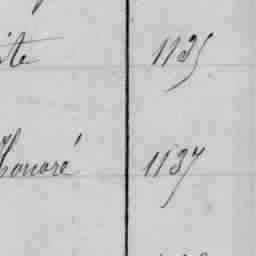 ite 1135
Honoré 1137